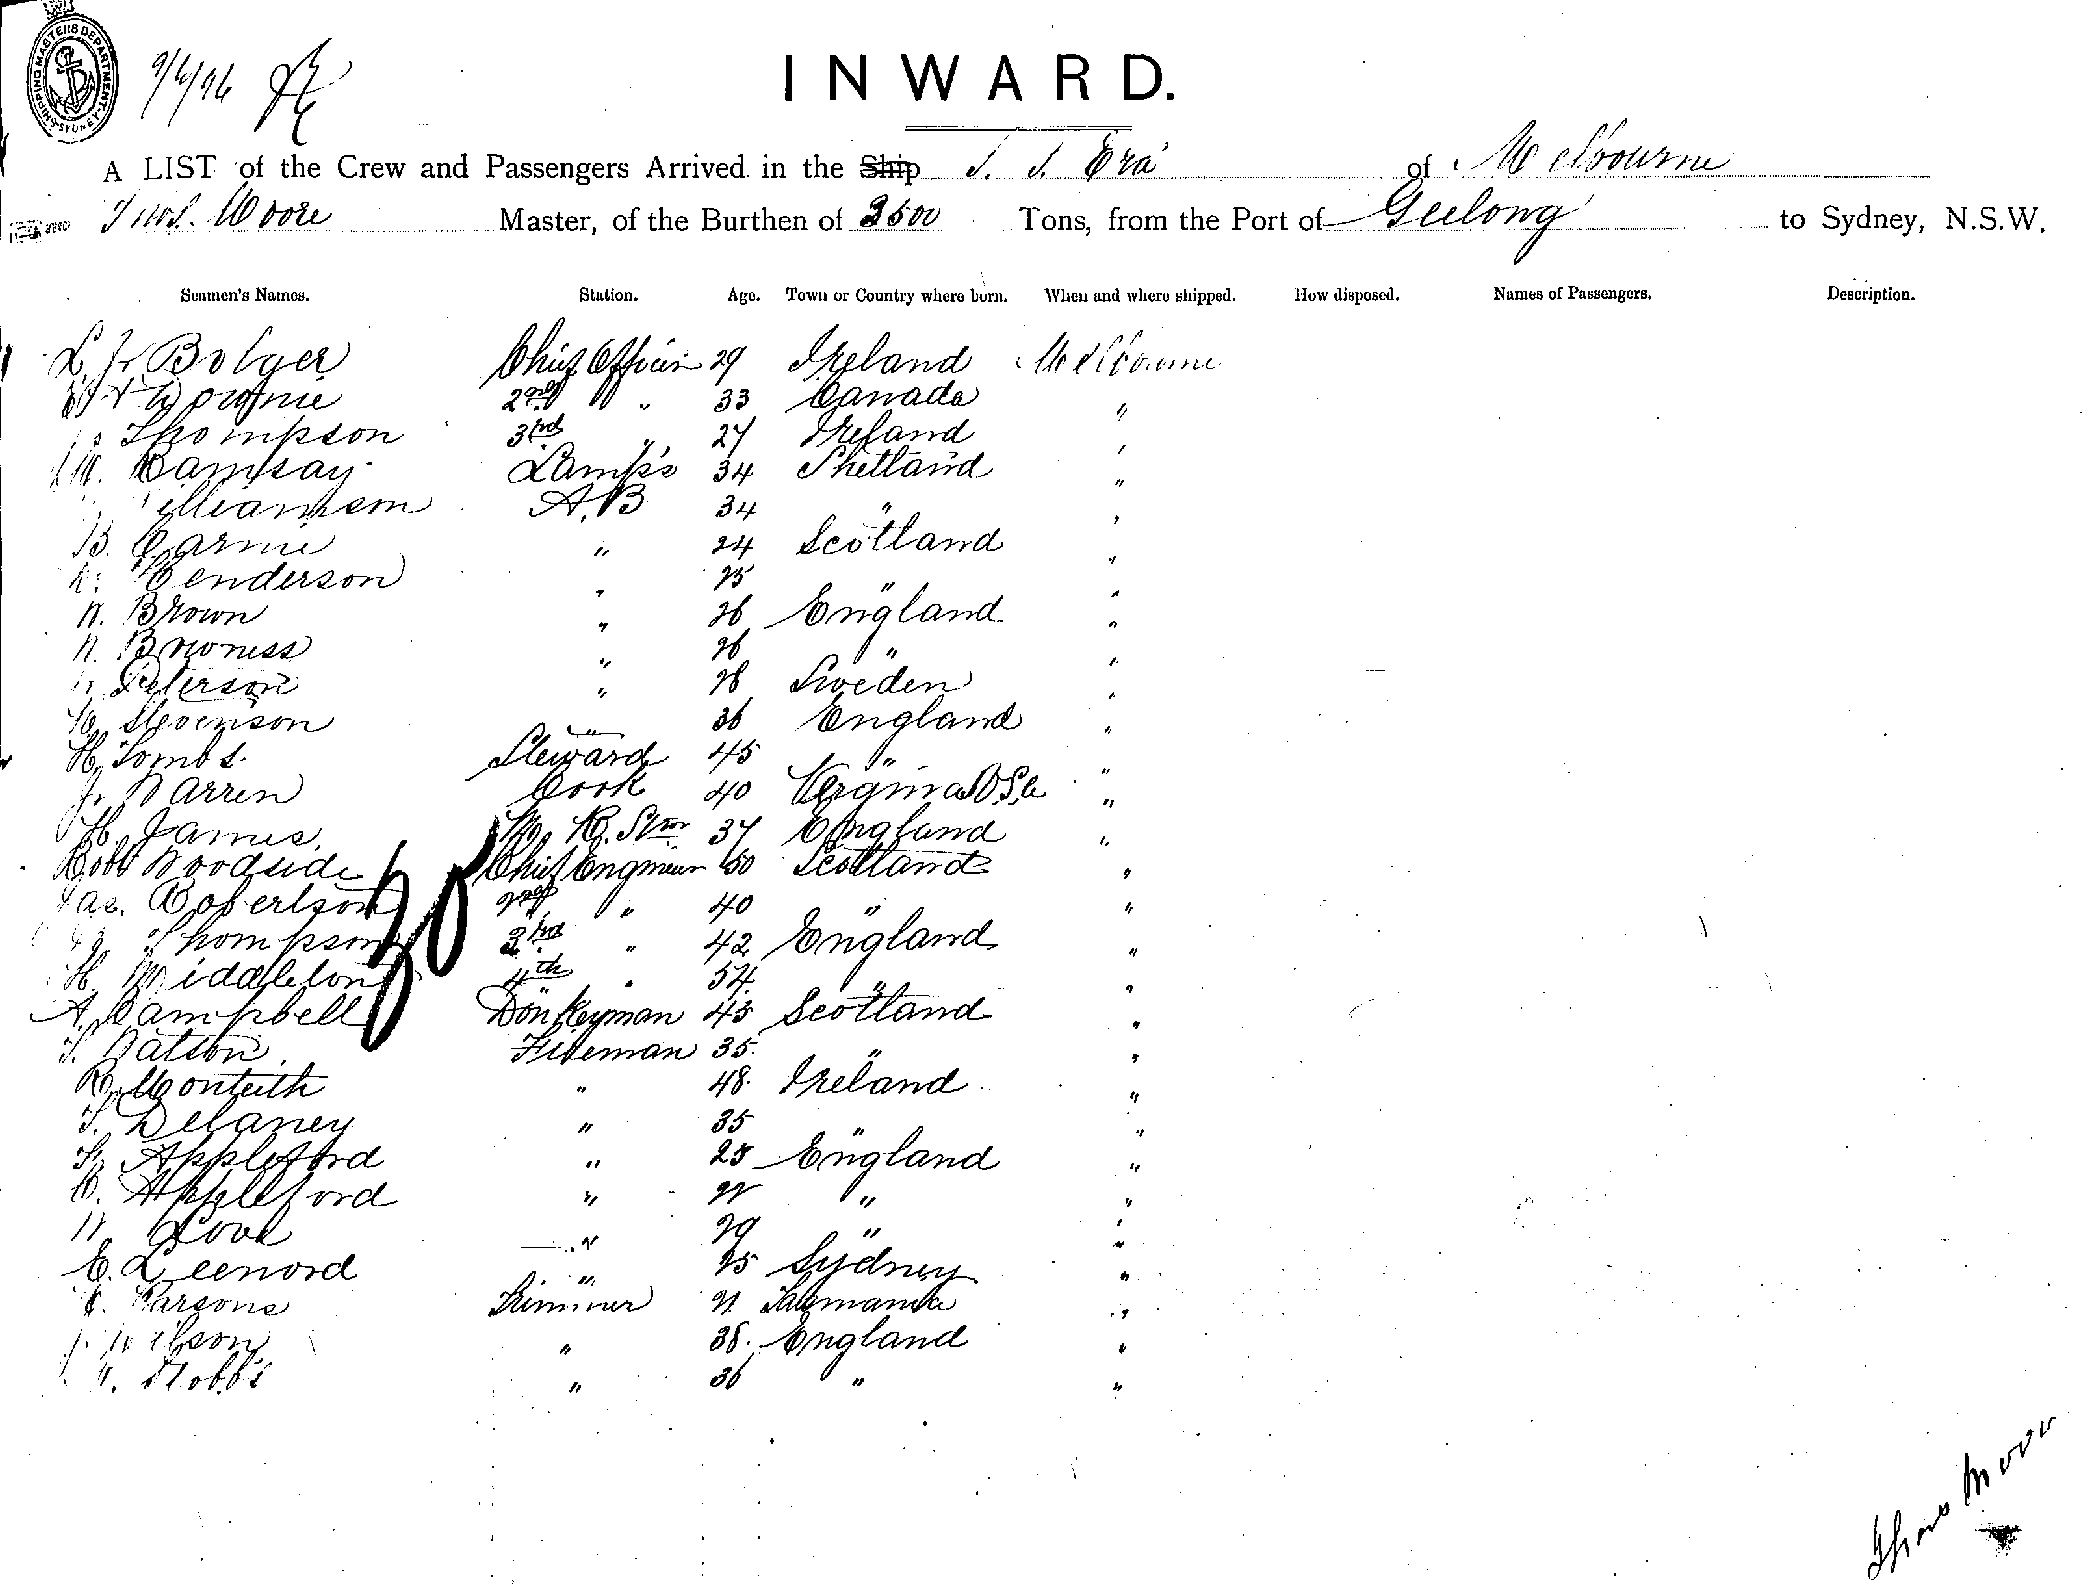 SHIPPING MASTER'S DEPARTMENT. SYDNEY
9/6/96
INWARD.
A LIST of the Crew and Passengers Arrived in the Ship S. S. Era of Melbourne
Thos. Moore Master, of the Burthen of 3500 Tons, from the Port of Geelong to Sydney, N.S.W.
Seamen's Names. Station. Age. Town or Country where born. When and where shipped. How disposed. Names of Passengers. Description.
L. Jr. Bolger Chief Officer 29 Ireland Melbourne
Downie 2nd " 33 Canada "
Thompson 3rd " 27 Ireland "
W. Ramsay Lamps 34 Shetland "
Williamson A.B 34 " "
B. Carnie " 24 Scotland "
Henderson " 25 " "
W. Brown " 26 England "
Browness " 26 " "
Peterson " 28 Sweden "
Stevenson " 36 England "
H. Tombs. Steward 45 " "
J. Warren Cook 40 Virginia U.S.a "
H. James. M. R. Stwd 37 England "
Robt Woodside Chief Engineer 50 Scotland "
Jas. Robertson 2nd " 40 " "
Thompson 3rd " 42 England "
H. Middleton 4th " 54 " "
A. Campbell Donkeyman 45 Scotland "
T. Watson Fireman 35 " "
R. Monteith " 48 Ireland "
T. Delaney " 35 " "
Appleford " 25 England "
C. Appleford " 22 " "
W. Cook " 29 " "
E. Leenord " 25 Sydney "
Parsons Trimmer 21 Tasmania "
J. Wilson " 38 England "
Hobbs " 36 " "
Thos Moore